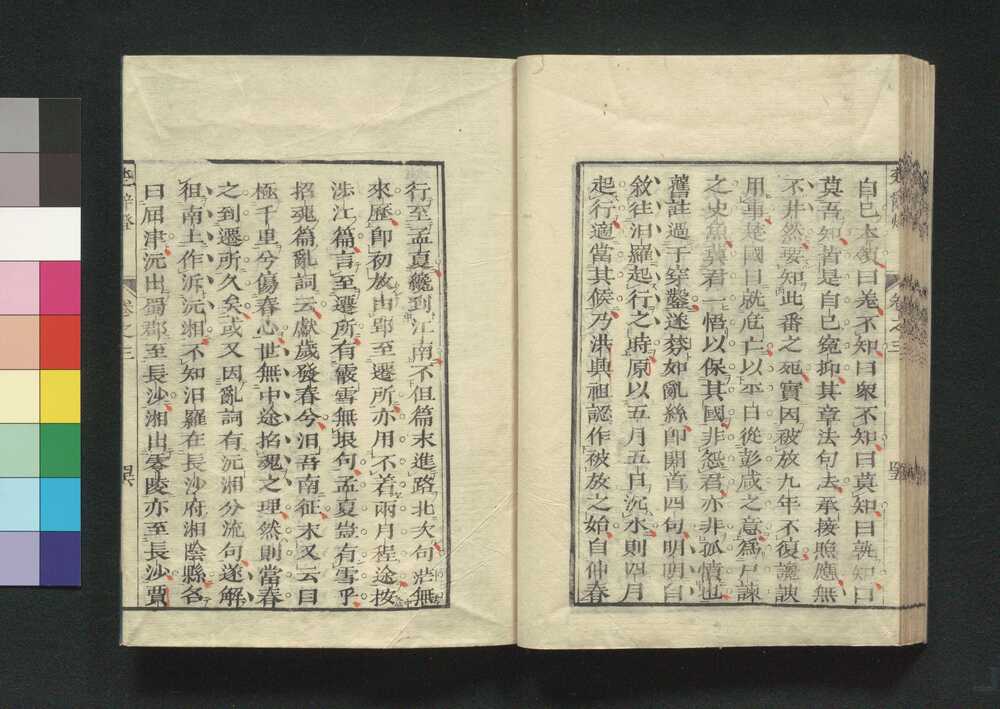 自己本領曰卷不知曰衆不知曰莫知曰孰知曰
莫吾知皆是自已冤抑其章法句法承接照應無
不井然要知此番之死實因被放九年不復讒諛
用事楚國日就危亡以平日從彭咸之意爲尸諫
之史魚冀君一悟以保其國非怨君亦非孤憤也
舊註過于穿鑿遂棼如亂絲卽開首四句明明自
敘往汨羅起行之時原以五月五日沉水則四月
起行適當其候乃洪興祖認作被放之始自仲春
行至孟夏纔到江南不但篇末進路北次句茫無
來歷卽初放由郢至遷所亦用不着兩月程途按
涉江篇言至遷所有霰雪無垠句孟夏豈有雪乎
招魂篇亂詞云獻歲發春兮汨吾南征末又云目
極千里兮傷春心世無中途招魂之理然則當春
之到遷所久矣或又因亂詞有沅湘分流句遂解
徂南土作泝沅湘不知汨羅在長沙府湘陰縣名
曰屈津沅出蜀郡至長沙湘出零陵亦至長沙賈
楚辭燈
卷之三